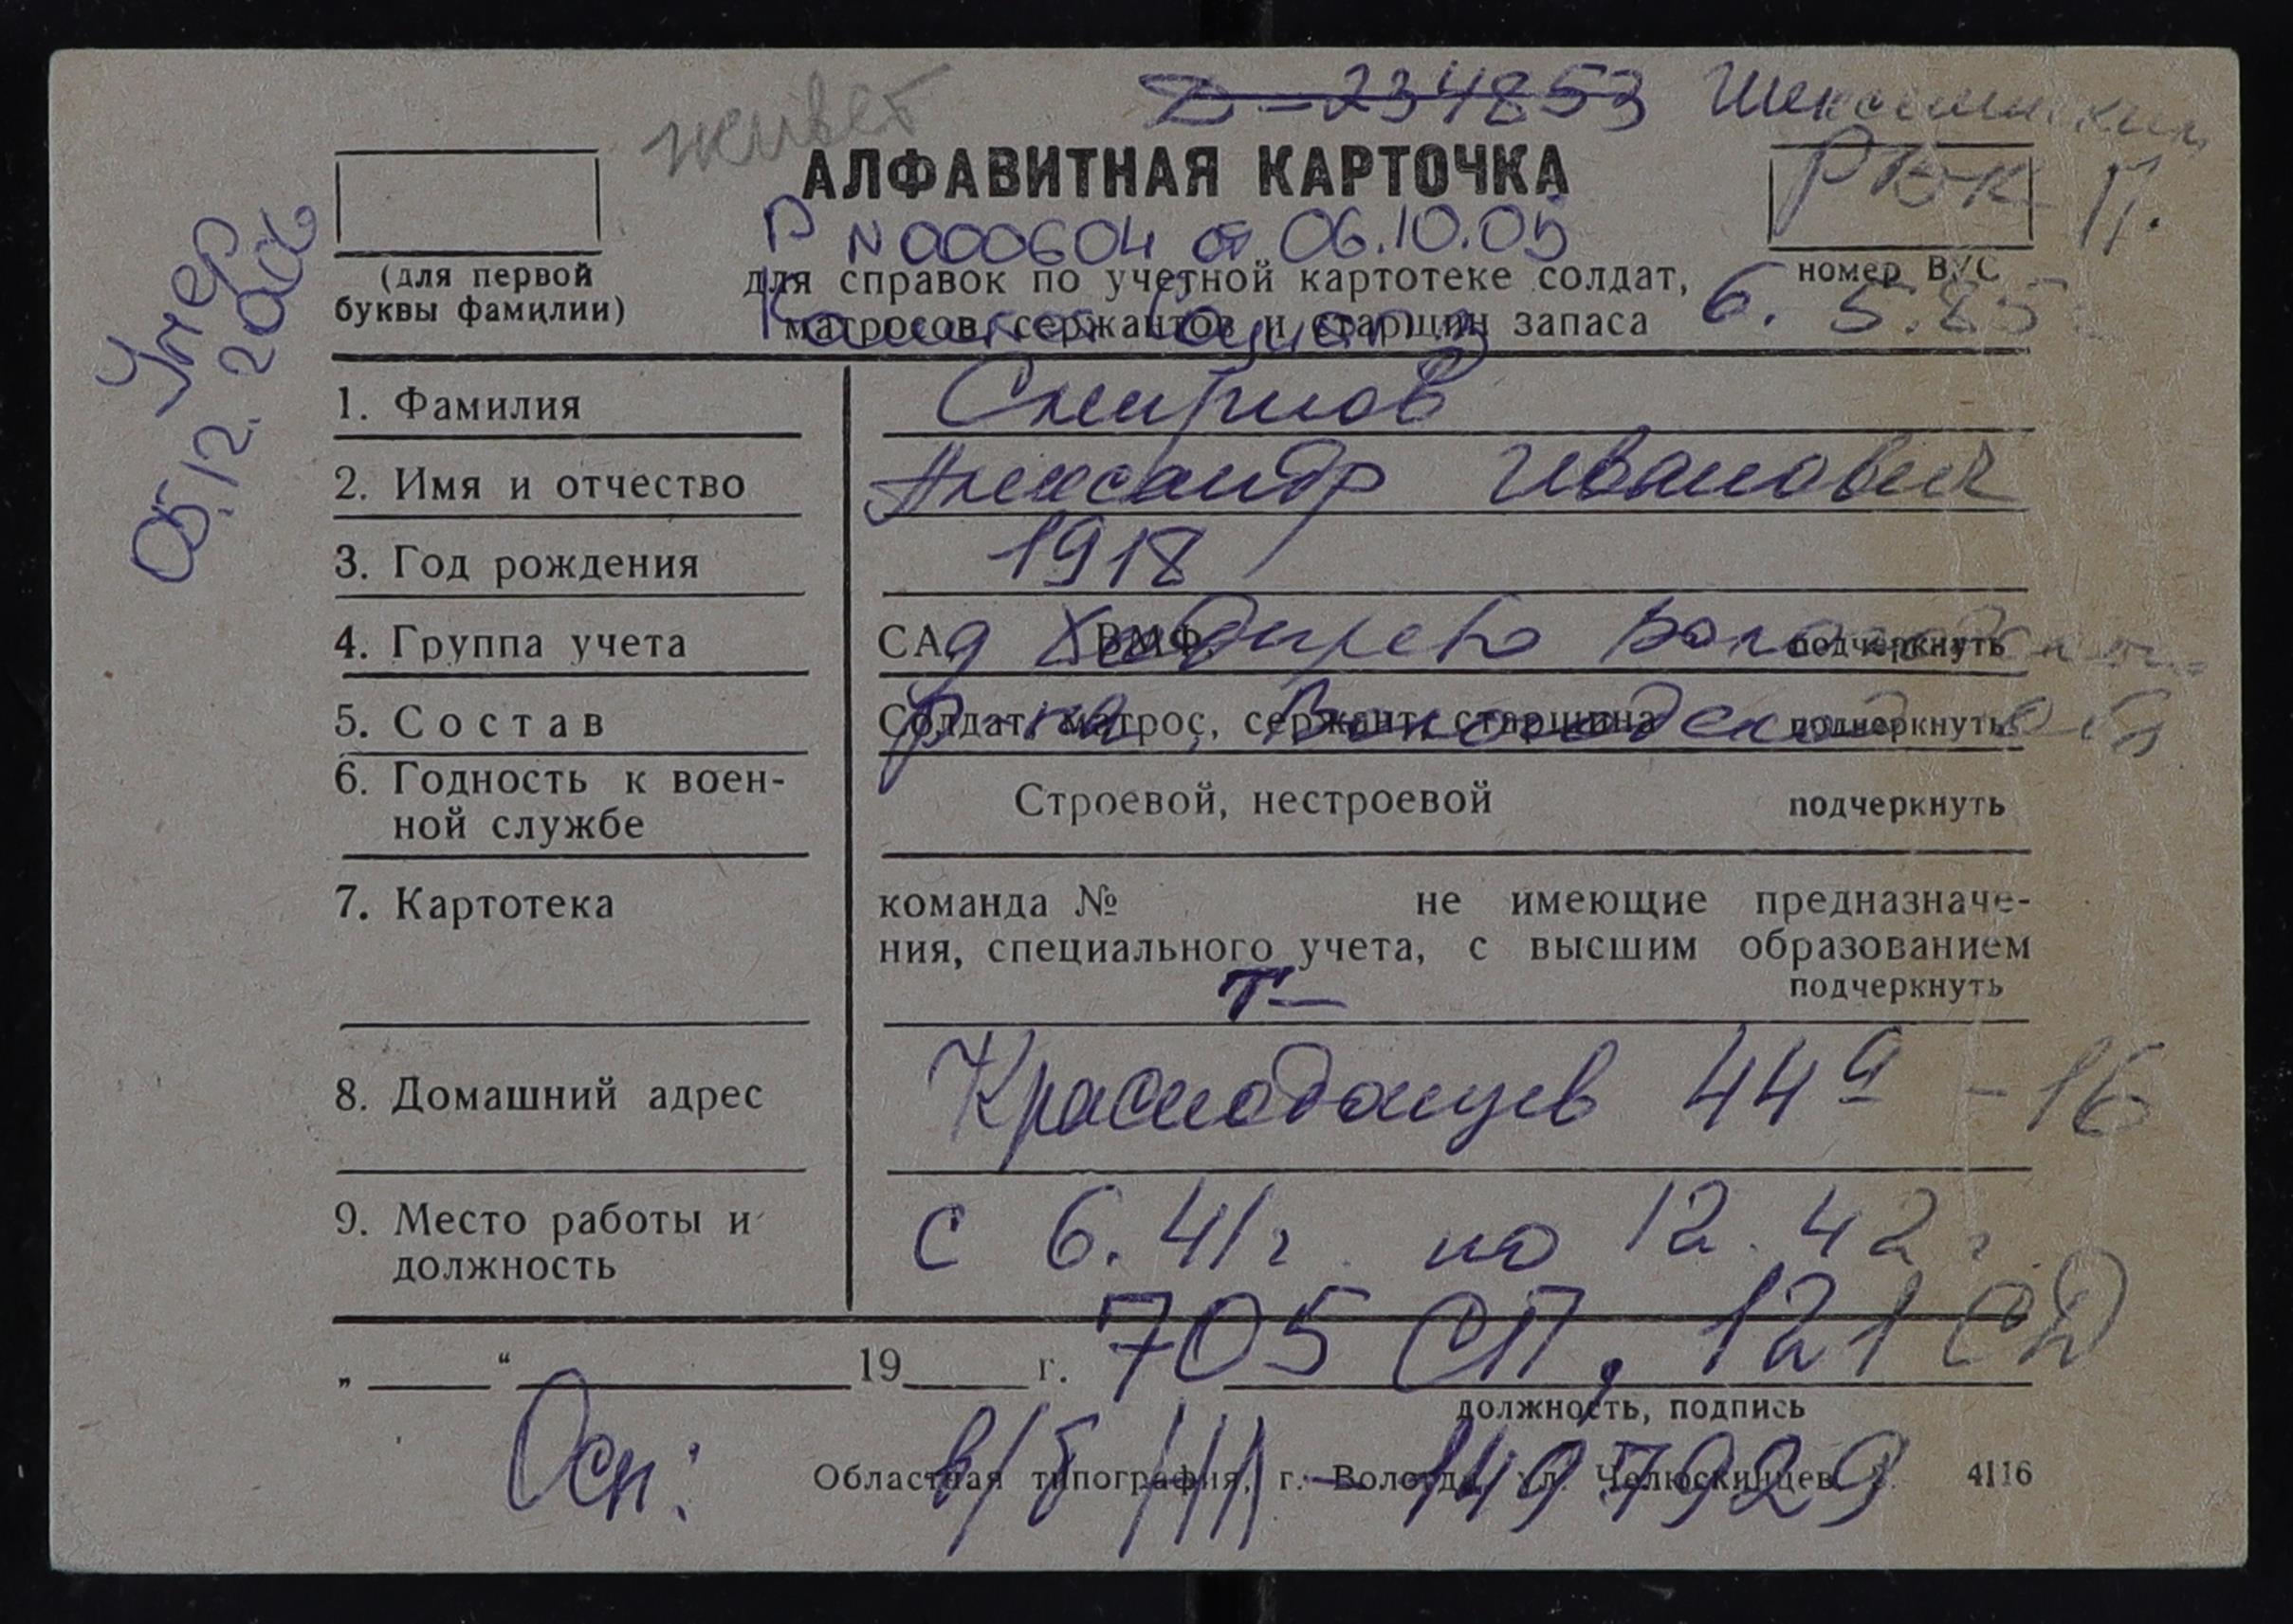 живет Д-234853 Шекснинским
АЛФАВИТНАЯ КАРТОЧКА
РВК - П.
Р N 000604 от 06.10.05
(для первой
буквы фамилии)
для справок по учетной картотеке солдат,
матросов, сержантов и старшин запаса
номер ВУС
6.5.85
Умер
05.12.
1. Фамилия Смирнов
2. Имя и отчество Александр Иванович
3. Год рождения 1918
4. Группа учета СА, ВМФ подчеркнуть
д
5. Состав Солдат, матрос, сержант, старшина подчеркнуть
р-на, Вологодской обл
6. Годность к воен-
ной службе
Строевой, нестроевой подчеркнуть
7. Картотека
команда № не имеющие предназначе-
ния, специального учета, с высшим образованием
подчеркнуть
Т-
8. Домашний адрес Краснодонцев 44а - 16
9. Место работы и
должность
с 6.41г. по 12.42г.
705 СП, 121 СД
„ “ 19 г.
должность, подпись
Осн: в/б III - 1497929
Областная типография, г. Вологда, ул. Челюскинцев, 4116